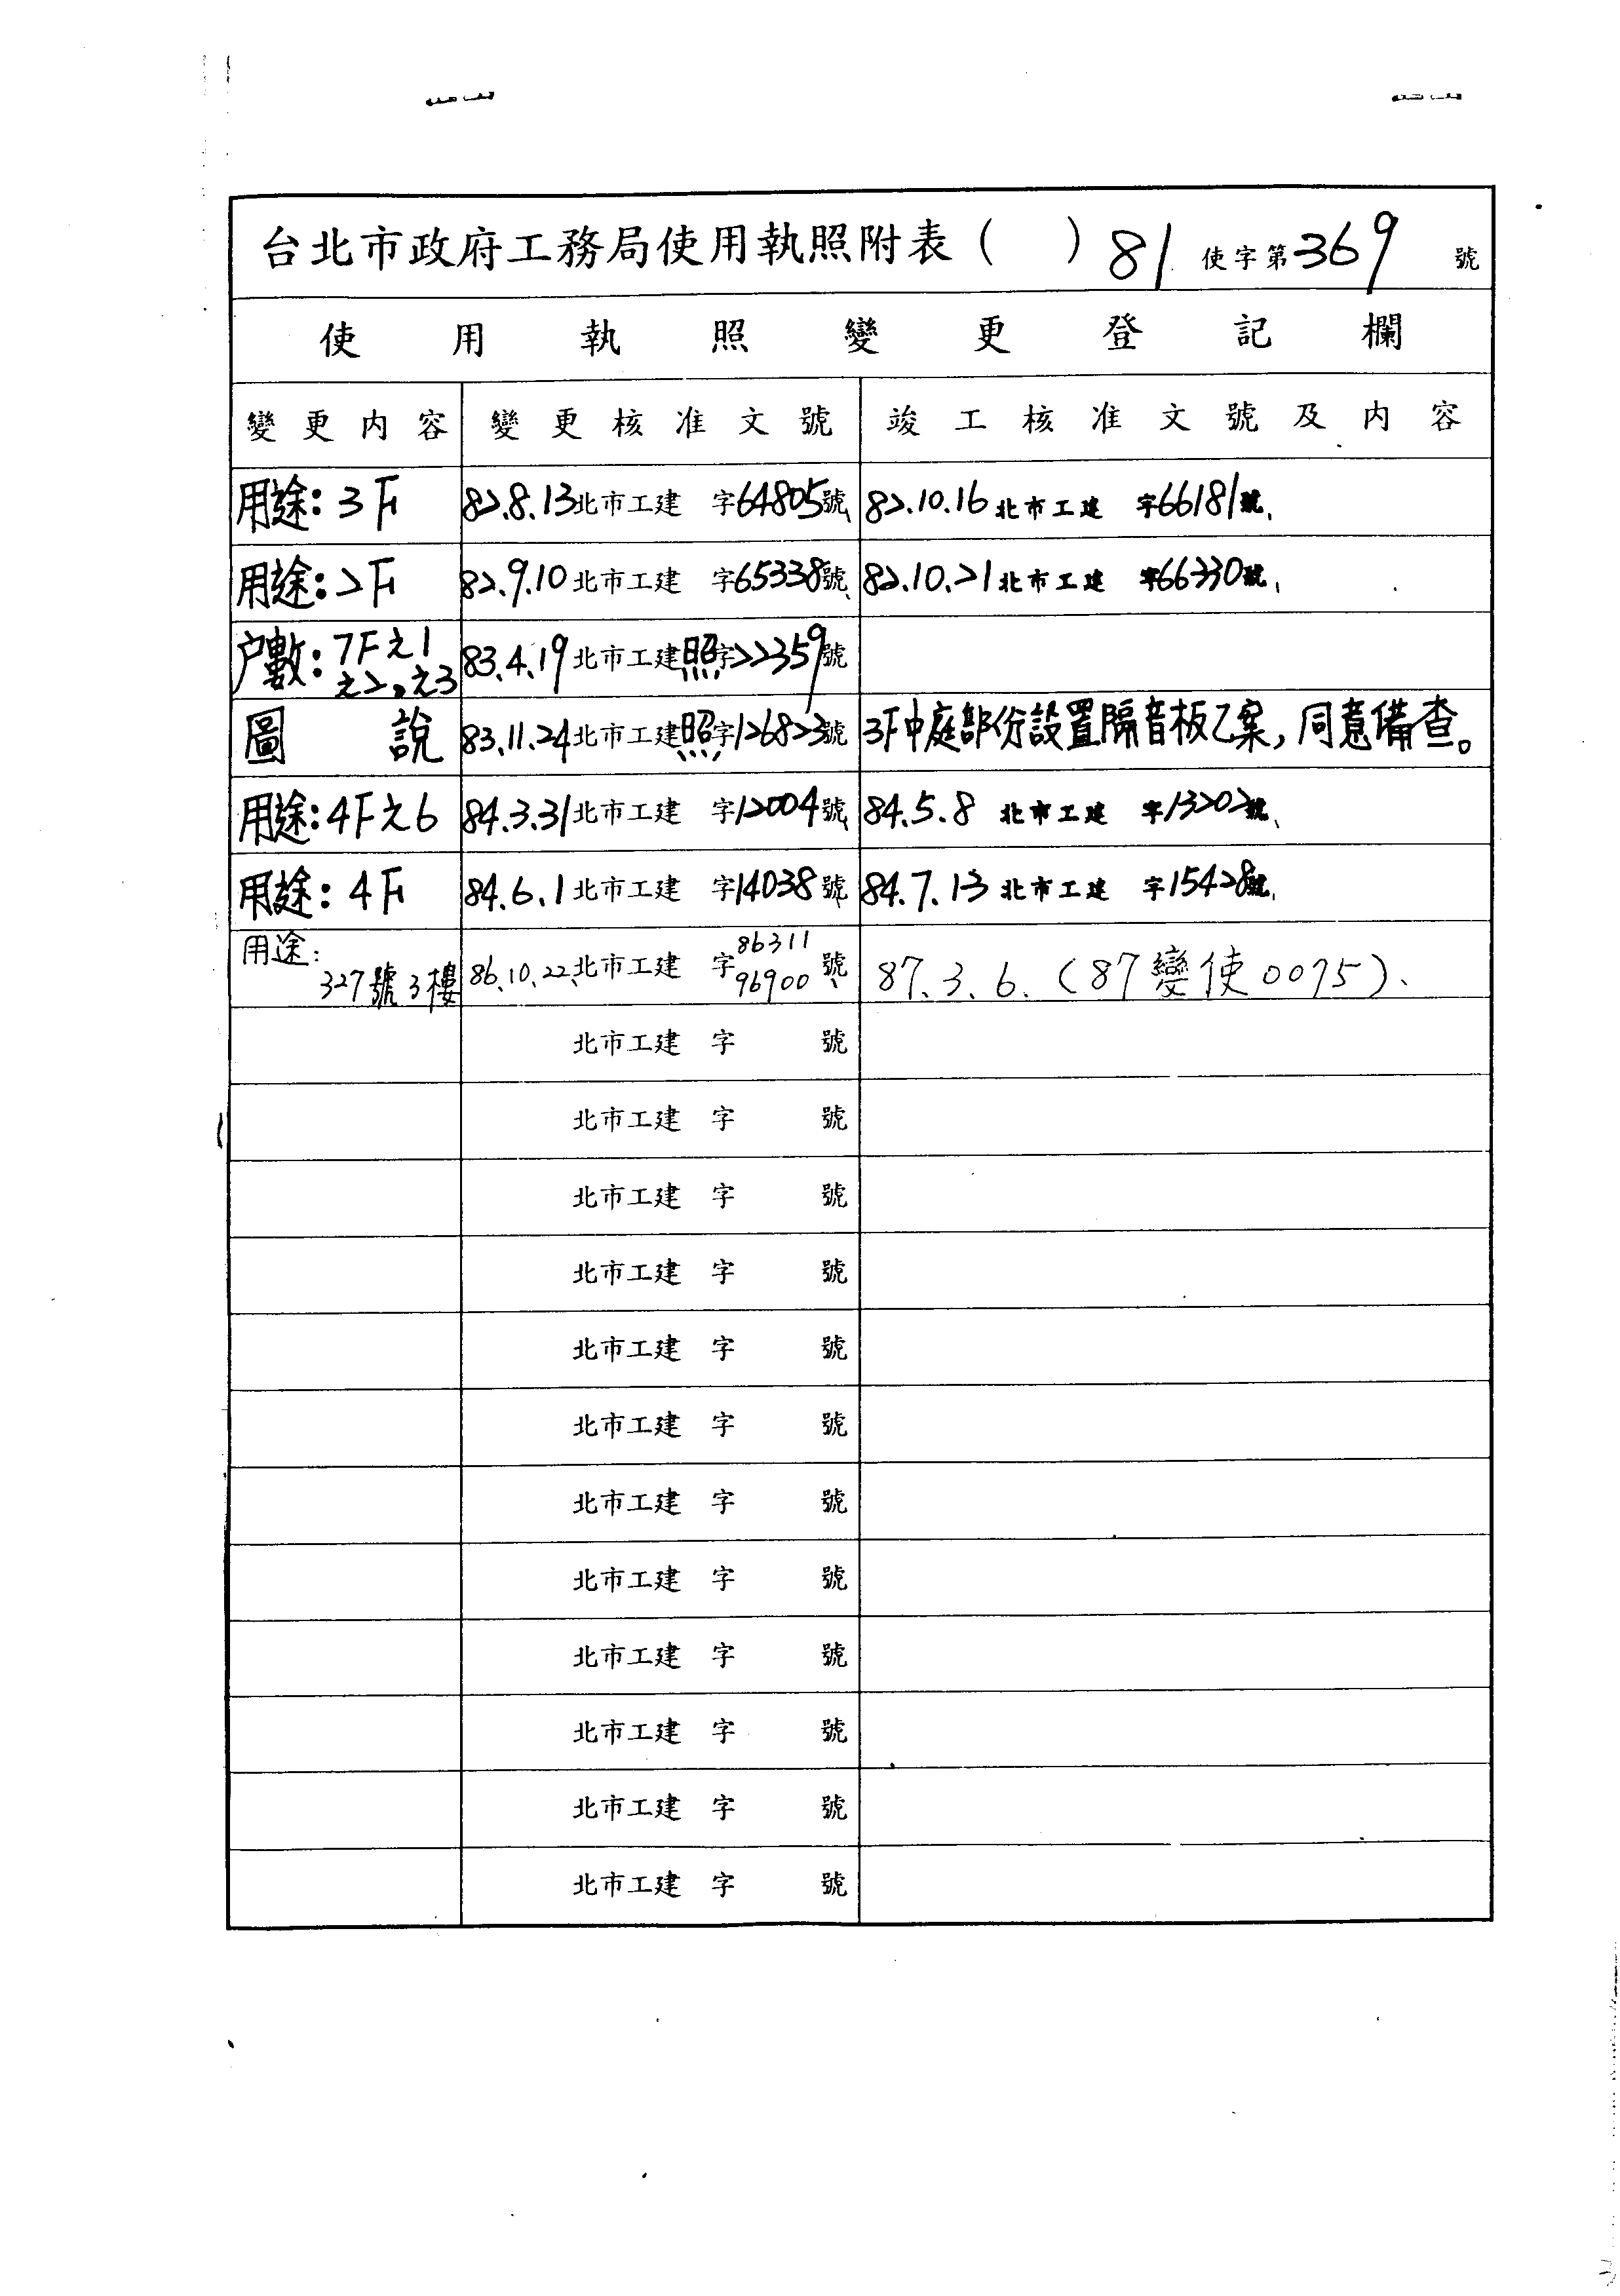 台北市政府工務局使用執照附表（　）81使字第369號
使用執照變更登記欄
變更內容 變更核准文號 竣工核准文號及內容
用途：3F 82.8.13北市工建 字64805號 82.10.16北市工建 字66181號
用途：2F 82.9.10北市工建 字65338號 82.10.21北市工建 字66330號
户數：7F之1
之2。之3 83.4.19北市工建照字22359號
圖說 83.11.24北市工建照字126823號 3F中庭部份設置隔音板乙案，同意備查。
用途：4F之6 84.3.31北市工建 字12004號 84.5.8 北市工建 字13202號
用途：4F 84.6.1北市工建 字14038號 84.7.13北市工建 字15428號
用途：
327號3樓 86.10.22北市工建 字86311
96900號 87.3.6.（87變使0075）、
北市工建 字 號
北市工建 字 號
北市工建 字 號
北市工建 字 號
北市工建 字 號
北市工建 字 號
北市工建 字 號
北市工建 字 號
北市工建 字 號
北市工建 字 號
北市工建 字 號
北市工建 字 號